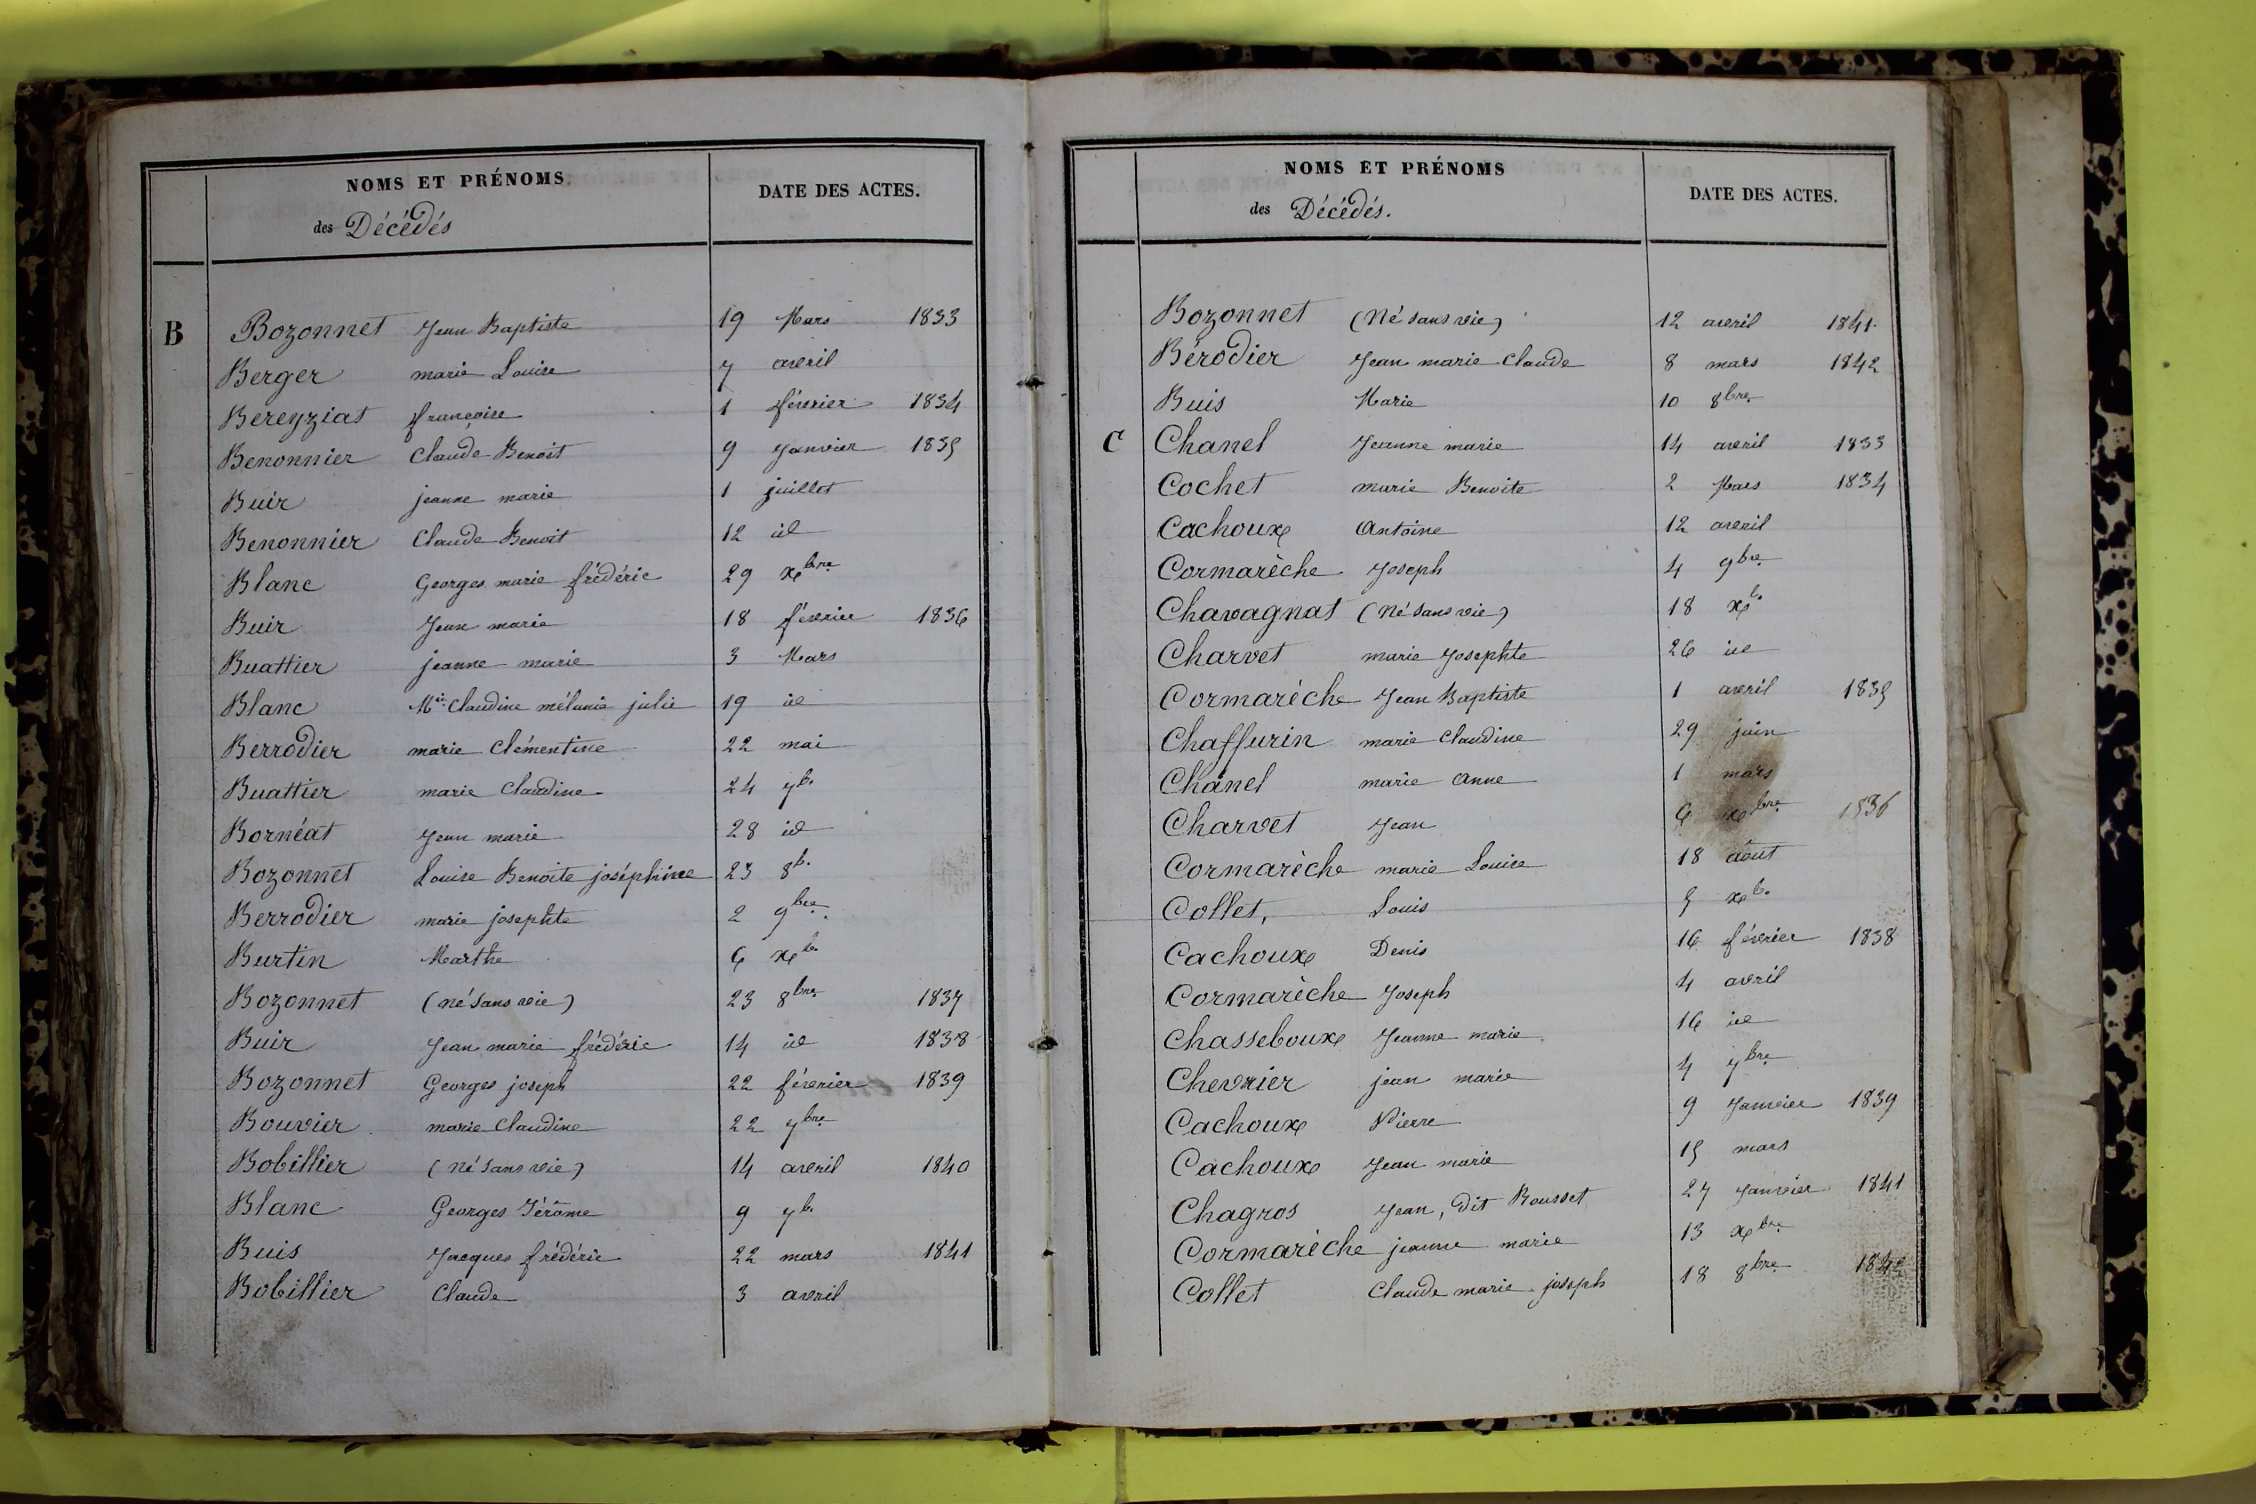 NOMS ET PRÉNOMS. DATE DES ACTES.
des Décédés
B Bozonnet Jean Baptiste 19 Mars 1833
Berger marie Louise 7 avril
Bereyziat françoise 1 février 1834
Benonnier Claude Benoit 9 Janvier 1835
Buir jeanne marie 1 juillet
Benonnier Claude Benoit 12 id
Blanc Georges marie frédéric 29 xbre
Buir Jean marie 18 février 1836
Buattier jeanne marie 3 Mars
Blanc Mie Claudine mélanie julie 19 id
Berrodier marie Clémentine 22 mai
Buattier marie Claudine 24 7b.
Bornéat Jean marie 28 id
Bozonnet Louise Benoite joséphine 23 8b.
Berrodier marie josephte 2 9bre.
Burtin Marthe 6 xb.
Bozonnet (né sans vie) 23 8bre 1837
Buir Jean marie frédéric 14 id 1838
Bozonnet Georges joseph 22 février 1839
Bouvier marie Claudine 22 7bre
Bobillier (né sans vie) 14 avril 1840
Blanc Georges Jérôme 9 7b.
Buis Jacques frédéric 22 mars 1841
Bobillier Claude 3 avril
NOMS ET PRÉNOMS DATE DES ACTES.
des Décédés.
Bozonnet (né sans vie) 12 avril 1841
Bérodier Jean marie Claude 8 mars 1842
Buis Marie 10 8bre
C Chanel Jeanne marie 14 avril 1833
Cochet marie Benoite 2 Mars 1834
Cachoux Antoine 12 avril
Cormarèche Joseph 4 9bre
Chavagnat (né sans vie) 18 xb.
Charvet marie Josephte 26 id
Cormarèche Jean Baptiste 1 avril 1835
Chaffurin marie Claudine 29 juin
Chanel marie Anne 1 mars
Charvet Jean 6 xbre 1836
Cormarèche marie Louise 18 août
Collet, Louis 5 xb.
Cachoux Denis 16 février 1838
Cormarèche Joseph 4 avril
Chasseboux Jeanne marie 16 id
Chevrier jean marie 4 7bre
Cachoux Pierre 9 Janvier 1839
Cachoux Jean marie 15 mars
Chagros Jean, dit Rousset 27 Janvier 1841
Cormarèche jeanne marie 13 xbre
Collet Claude marie joseph 18 8bre 1842